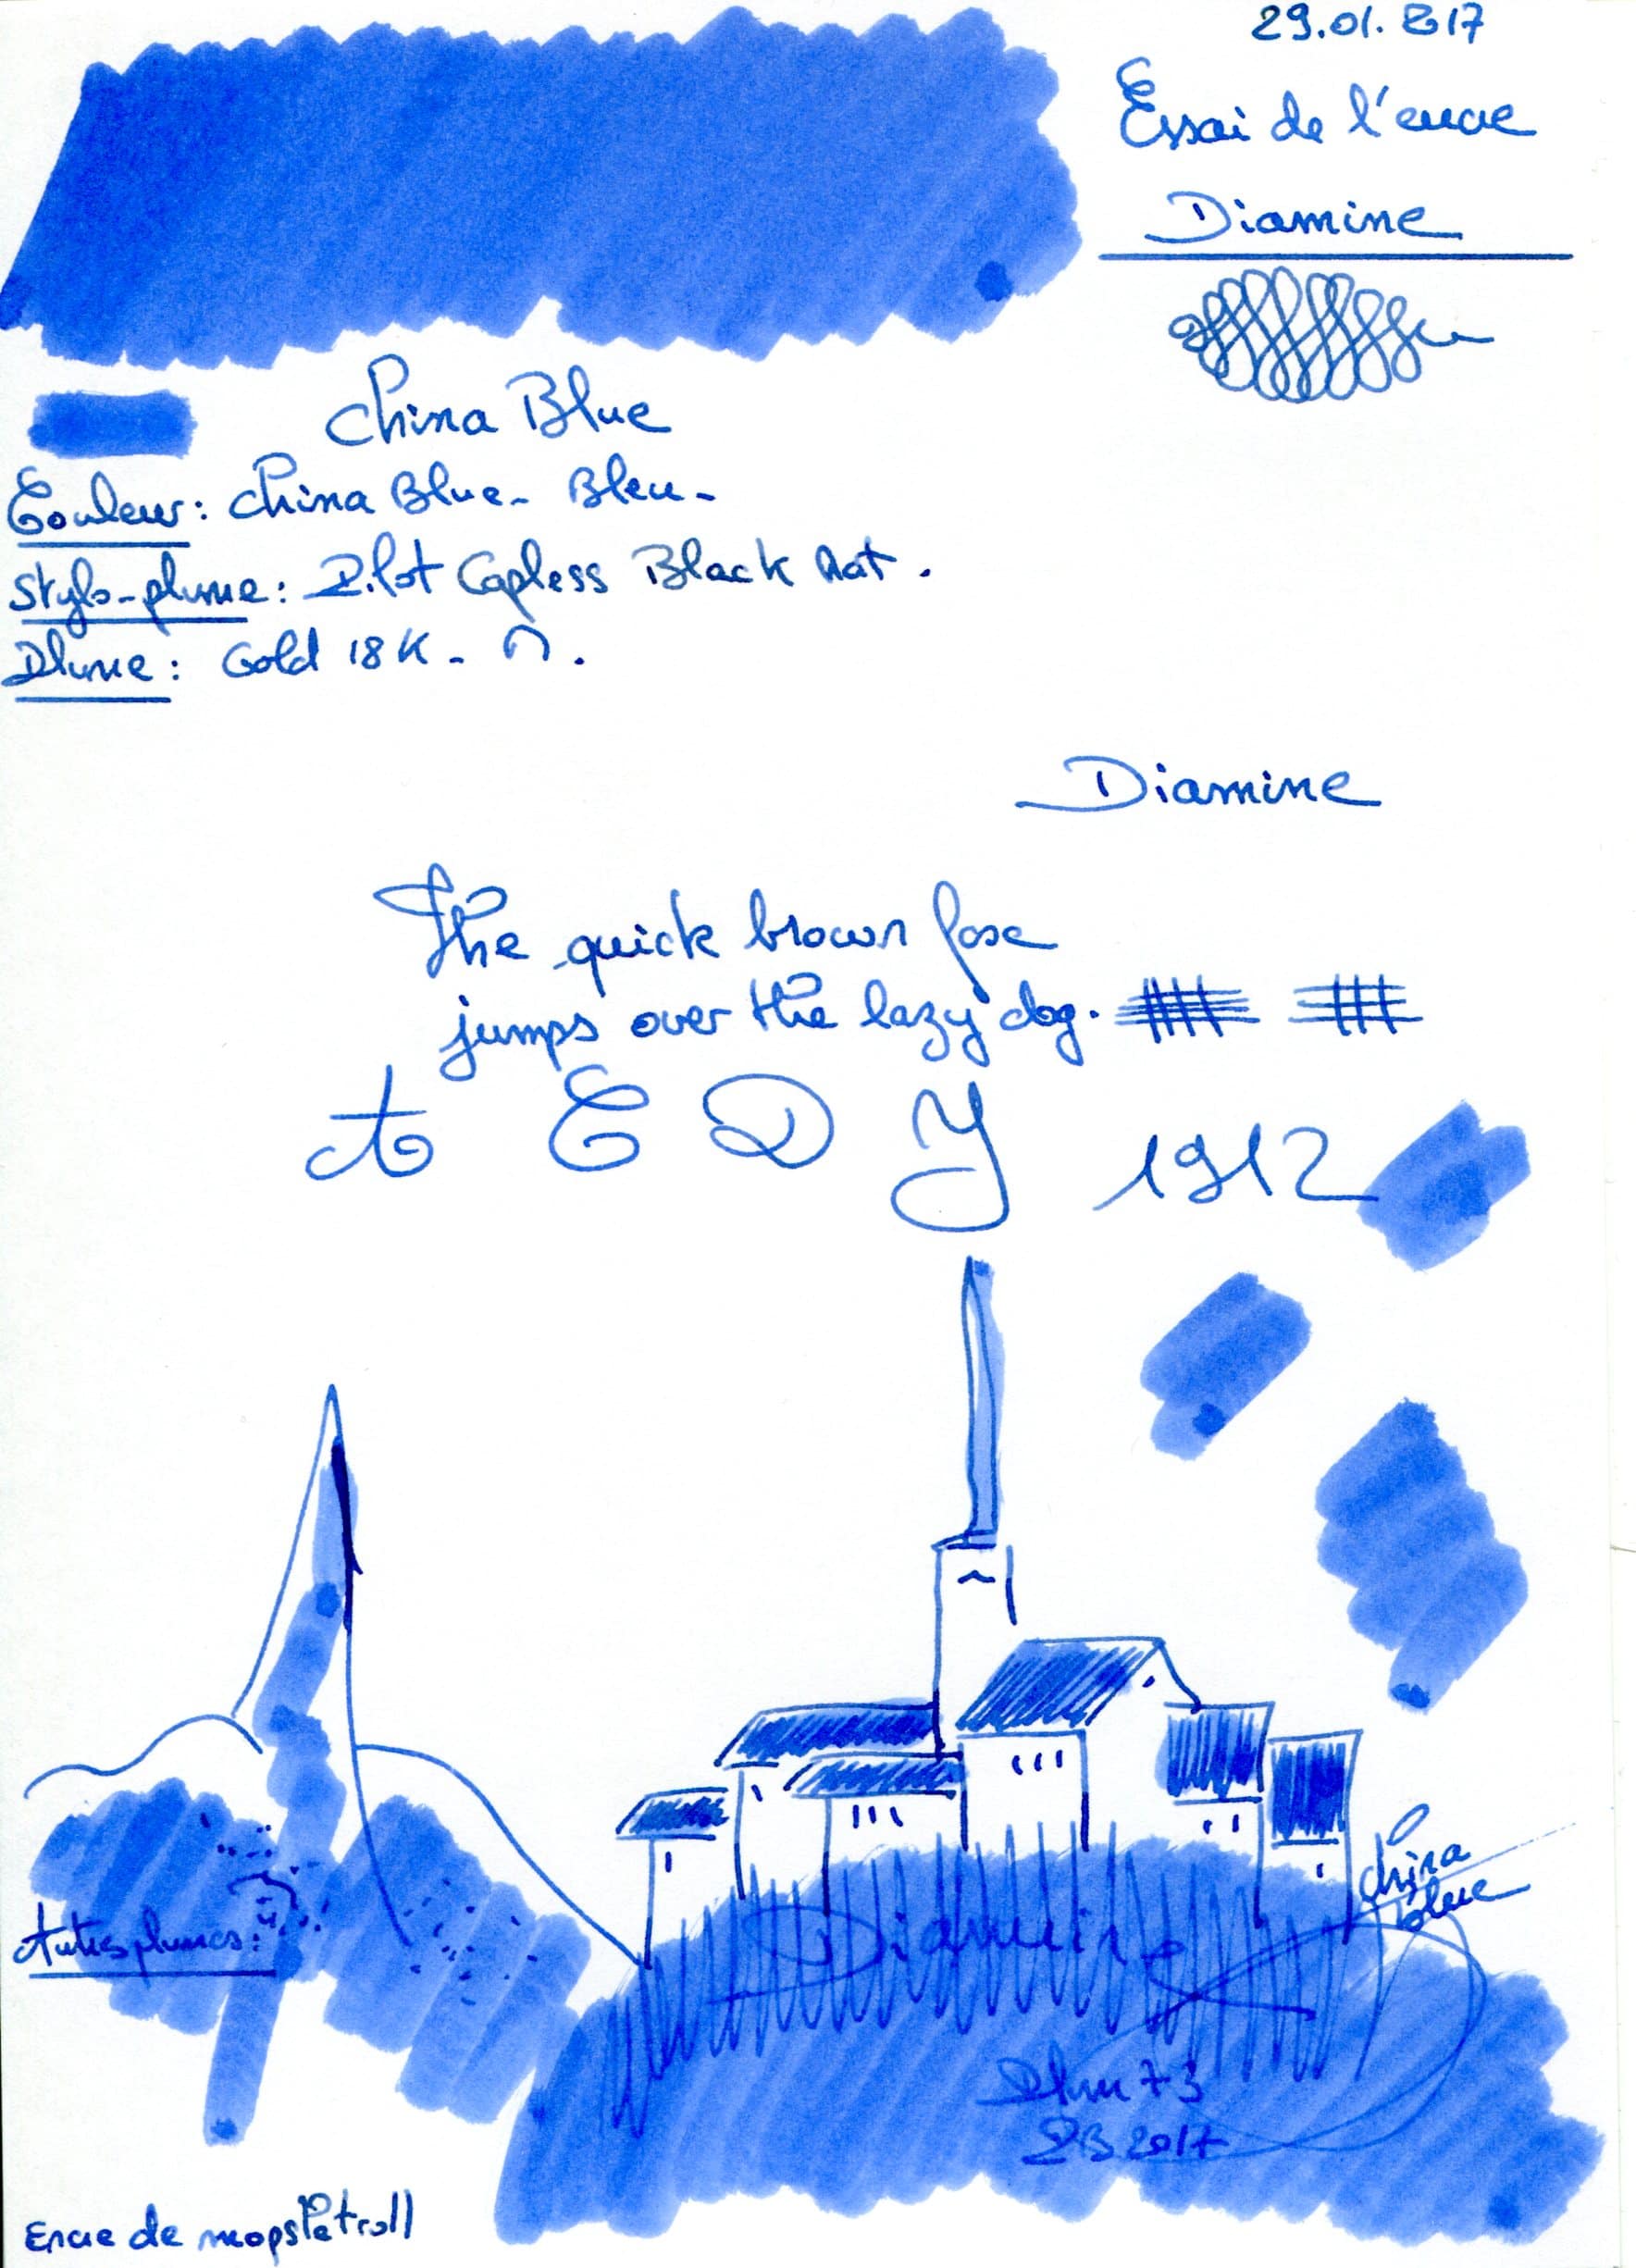 29.01.2017
Essai de l'encre
Diamine
China Blue
Couleur: China Blue- Bleu-
Stylo-plume: Pilot Capless Black Mat.
Plume: Gold 18K- M.
Diamine
The quick brown fox
jumps over the lazy dog.
A E D Y 1912
China
blue
Autres plumes:
Diamine
Plum 73
PB 2017
Encre de mopsletroll